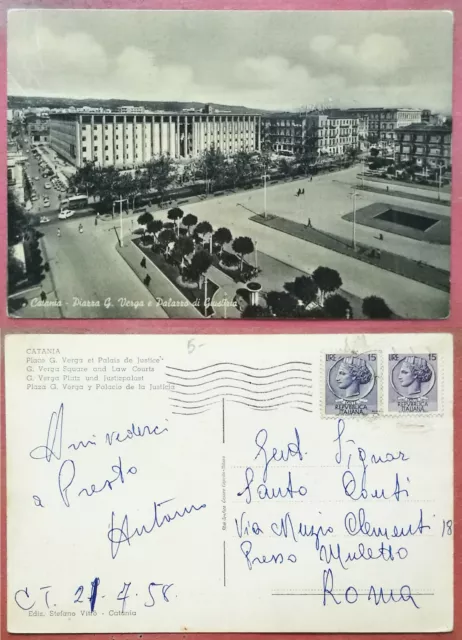 Catania - Piazza G. Verga e Palazzo di Giustizia
CATANIA
Place G. Verga et Palais de Justice
G. Verga Square and Law Courts
G. Verga Platz und Justizpalast
Plaza G. Verga y Palacio de la Justicia
5-
LIRE 15
REPUBBLICA
ITALIANA
LIRE 15
REPUBBLICA
ITALIANA
Arrivederci
a Presto
Antonio
C.T. 21.7.58.
Gent. Signor
Santo Conti
Via Muzio Clementi 18
Presso Muletto
Roma
Ediz. Stefano Vitrò - Catania